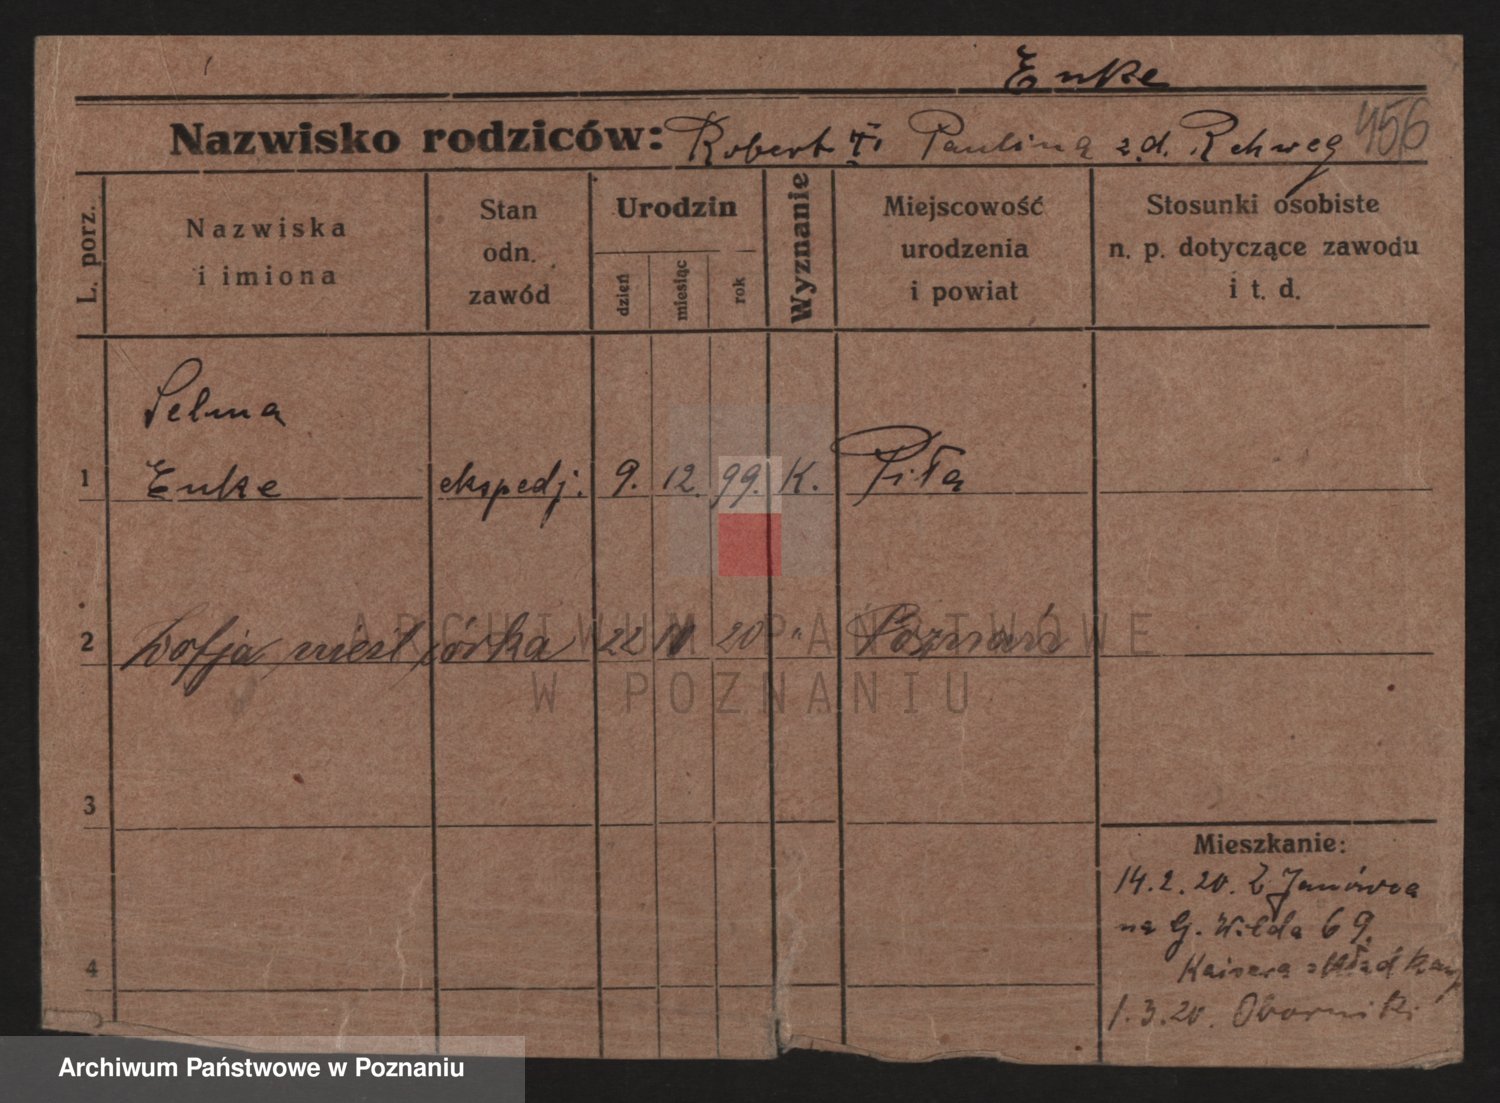 Enke
Nazwisko rodziców: Robert i Paulina z d. Rehweg 456
L. porz.
Nazwiska
i imiona
Stan
odn.
zawód
Urodzin
dzień
miesiąc
rok
Wyznanie
Miejscowość
urodzenia
i powiat
Stosunki osobiste
n. p. dotyczące zawodu
i t. d.
Selma
1 Enke ekspedj. 9. 12. 99. K. Piła
2 Zofja córka 22 20 " Poznań
3
4
Mieszkanie:
14.2.20. Z Janówca
na G. Wilda 69.
Kaisera
1.3.20. Oborniki
ARCHIWUM PAŃSTWOWE
W POZNANIU
Archiwum Państwowe w Poznaniu